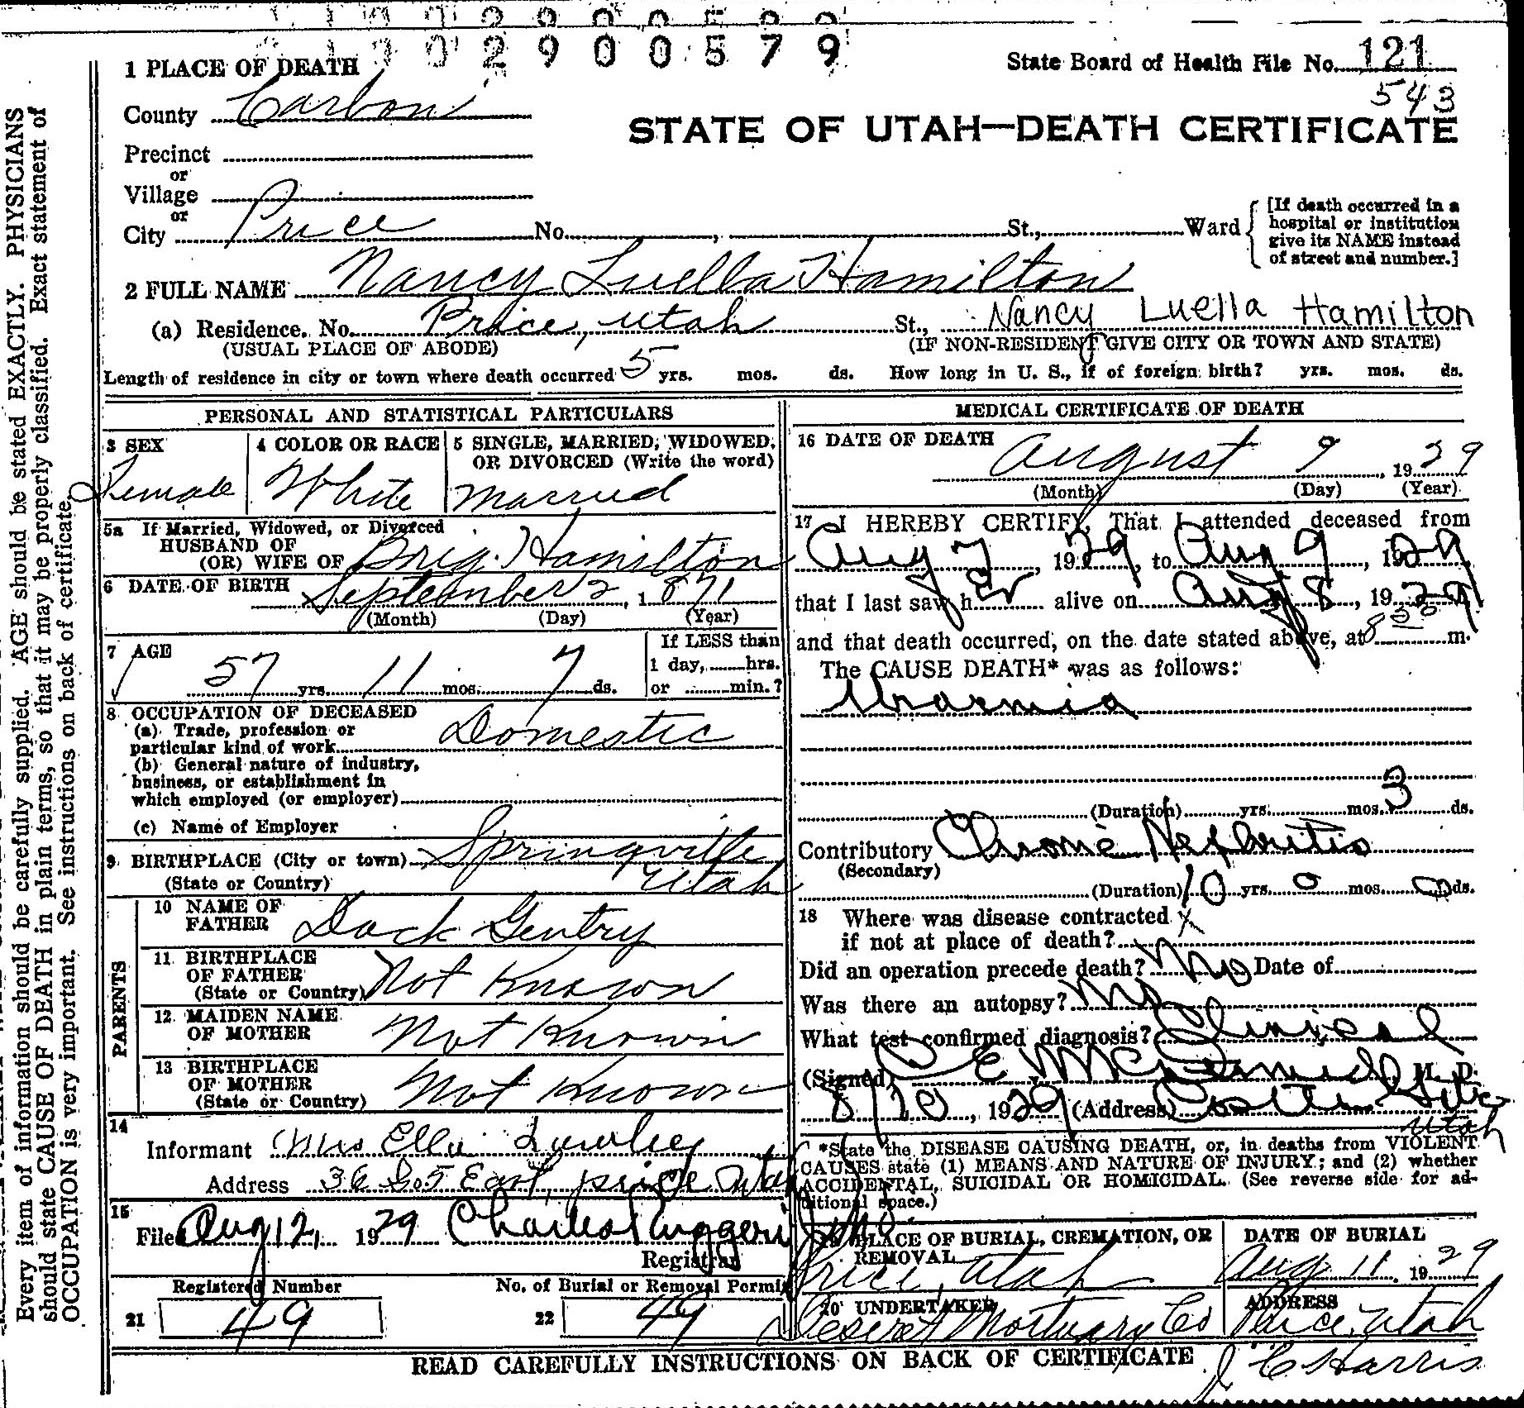 1302900579
1 PLACE OF DEATH
State Board of Health File No. 121
543
County Carbon
STATE OF UTAH—DEATH CERTIFICATE
Precinct
or
Village
or
City Price No. , St., Ward
[If death occurred in a
hospital or institution
give its NAME instead
of street and number.]
2 FULL NAME Nancy Luella Hamilton
(a) Residence. No. Price, Utah St., Nancy Luella Hamilton
(USUAL PLACE OF ABODE) (IF NON-RESIDENT GIVE CITY OR TOWN AND STATE)
Length of residence in city or town where death occurred 5 yrs. mos. ds. How long in U. S., if of foreign birth? yrs. mos. ds.
PERSONAL AND STATISTICAL PARTICULARS
3 SEX
Female
4 COLOR OR RACE
White
5 SINGLE, MARRIED, WIDOWED,
OR DIVORCED (Write the word)
Married
5a If Married, Widowed, or Divorced
HUSBAND OF
(OR) WIFE OF Brig. Hamilton
6 DATE OF BIRTH September 2, 1871
(Month) (Day) (Year)
7 AGE
57 yrs 11 mos. 7 ds.
If LESS than
1 day, hrs.
or min.?
8 OCCUPATION OF DECEASED
(a) Trade, profession or
particular kind of work Domestic
(b) General nature of industry,
business, or establishment in
which employed (or employer)
(c) Name of Employer
9 BIRTHPLACE (City or town) Springville
(State or Country) Utah
PARENTS
10 NAME OF
FATHER Dack Gentry
11 BIRTHPLACE
OF FATHER
(State or Country) Not Known
12 MAIDEN NAME
OF MOTHER Not Known
13 BIRTHPLACE
OF MOTHER
(State or Country) Not Known
14
Informant Mrs Ella
Address 36 So 5 East, price Utah
15
Filed Aug 12, 1929 Charles Ruggeri
Registrar
Registered Number
21 49
No. of Burial or Removal Permit
22 49
MEDICAL CERTIFICATE OF DEATH
16 DATE OF DEATH
August 9, 1929
(Month) (Day) (Year)
17 I HEREBY CERTIFY, That I attended deceased from
Aug 7, 1929, to Aug 9, 1929,
that I last saw her alive on Aug 8, 1929,
and that death occurred, on the date stated above, at 8 m.
The CAUSE DEATH* was as follows:
Uraemia
(Duration) yrs. mos. 3 ds.
Contributory Chronic Nephritis
(Secondary)
(Duration) 10 yrs. 0 mos. 0 ds.
18 Where was disease contracted
if not at place of death? X
Did an operation precede death? No Date of
Was there an autopsy? No
What test confirmed diagnosis? Clinical
(Signed) C E McDermid, M. D.
8/10, 1929 (Address) Castle Gate
Utah
*State the DISEASE CAUSING DEATH, or, in deaths from VIOLENT
CAUSES state (1) MEANS AND NATURE OF INJURY; and (2) whether
ACCIDENTAL, SUICIDAL OR HOMICIDAL. (See reverse side for ad-
ditional space.)
19 PLACE OF BURIAL, CREMATION, OR
REMOVAL
Price, Utah
DATE OF BURIAL
Aug 11, 1929
20 UNDERTAKER
Deseret Mortuary Co
ADDRESS
Price, Utah
J C Harris
READ CAREFULLY INSTRUCTIONS ON BACK OF CERTIFICATE
Every item of information should be carefully supplied. AGE should be stated EXACTLY. PHYSICIANS
should state CAUSE OF DEATH in plain terms, so that it may be properly classified. Exact statement of
OCCUPATION is very important. See instructions on back of certificate.